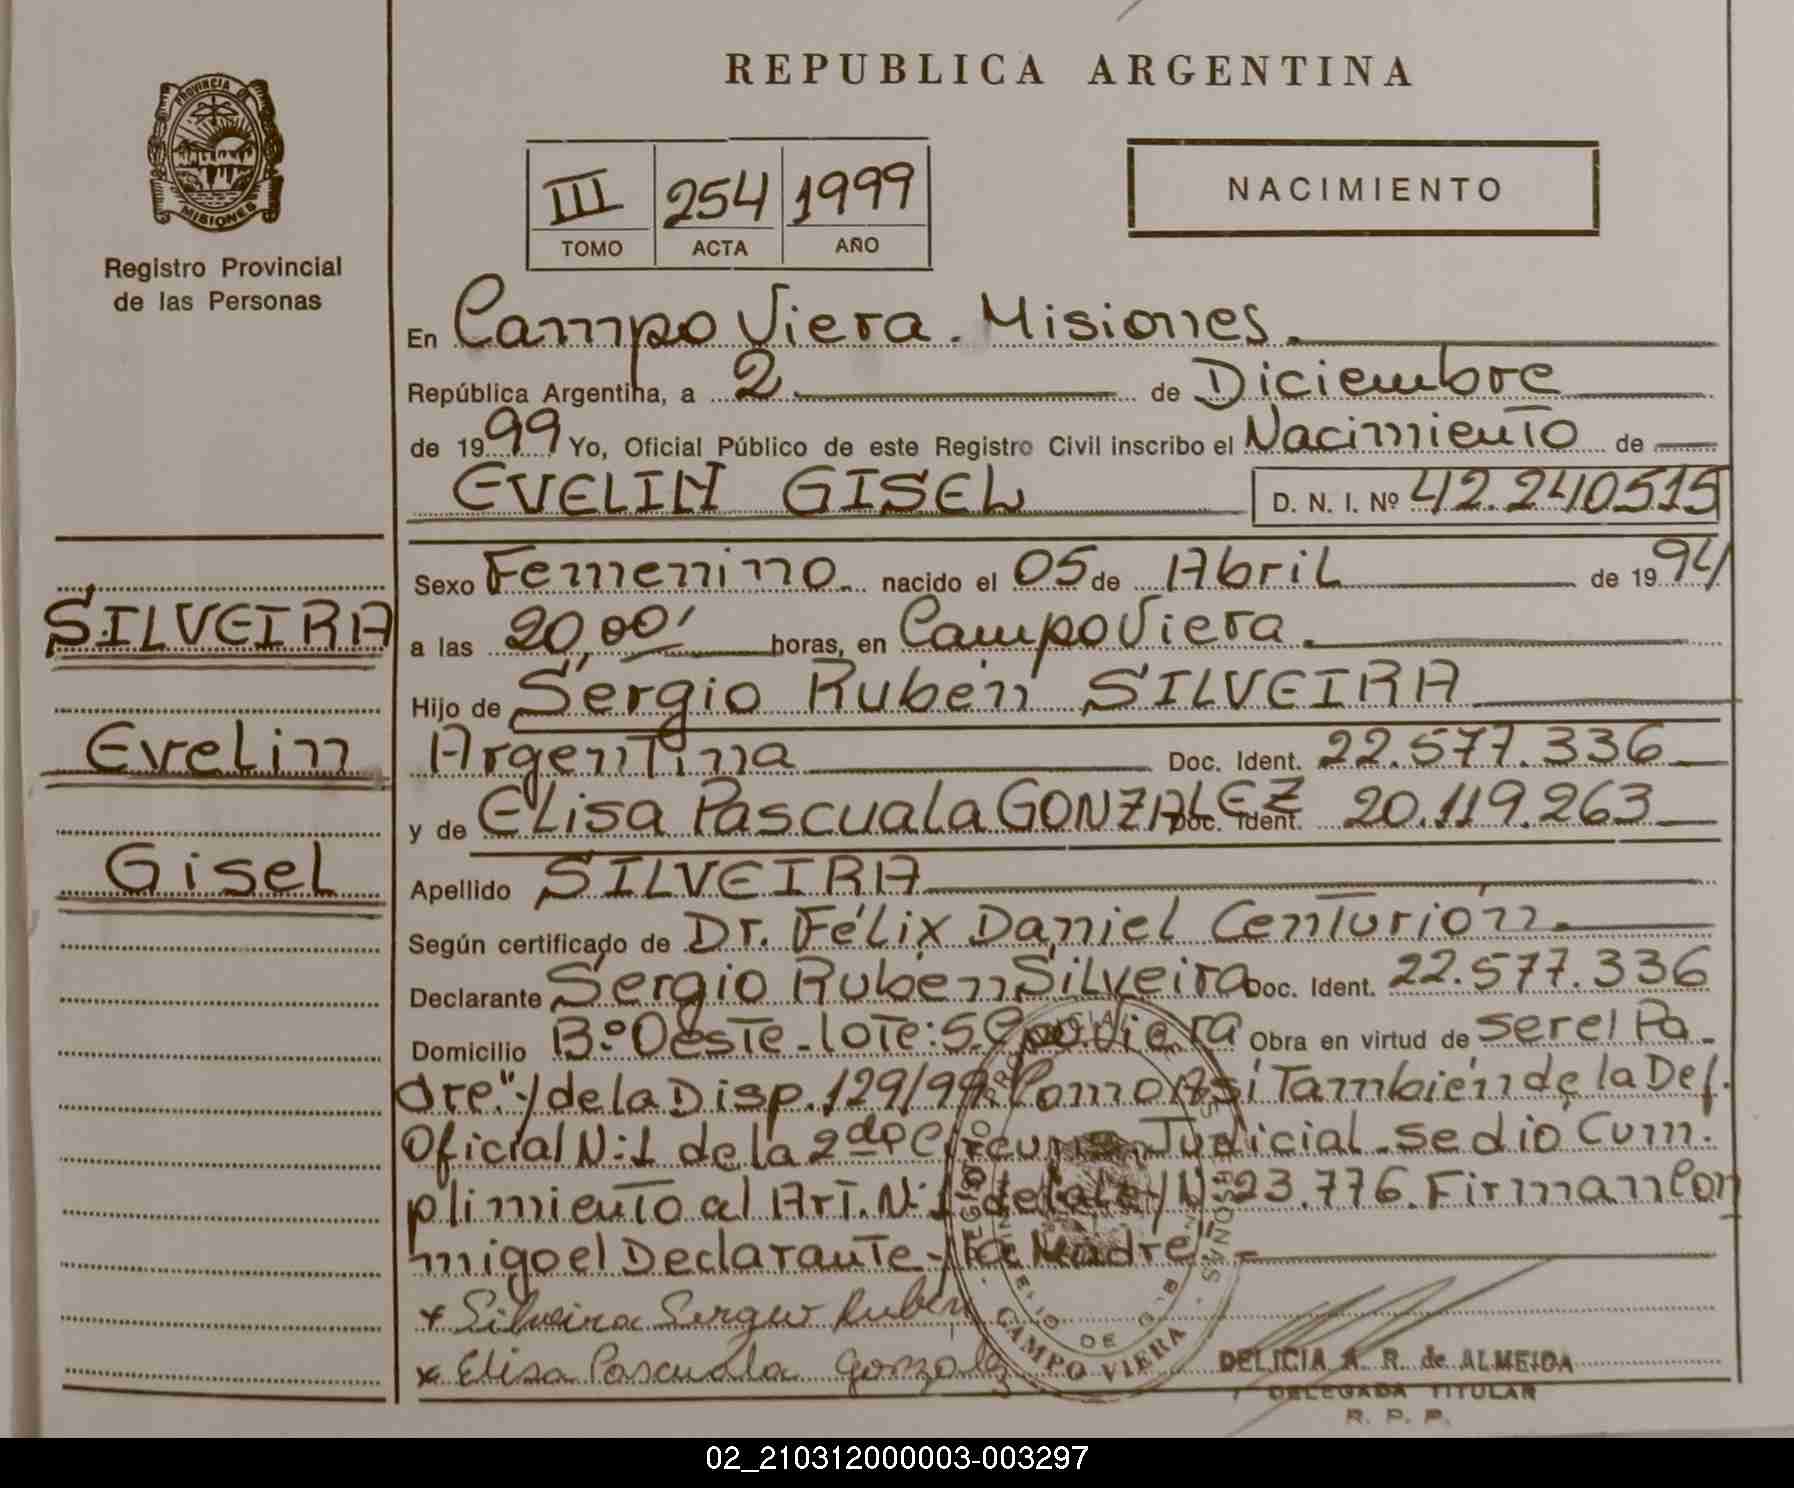 REPUBLICA ARGENTINA
PROVINCIA DE
MISIONES
Registro Provincial
de las Personas
III 254 1999
TOMO ACTA AÑO
NACIMIENTO
En Campo Viera. Misiones.
República Argentina, a 2 de Diciembre
de 1999 Yo, Oficial Público de este Registro Civil inscribo el Nacimiento de
EVELIN GISEL D. N. I. Nº 42.240515
SILVEIRA
Evelin
Gisel
Sexo Femenino nacido el 05 de Abril de 1994
a las 20,00' horas, en Campo Viera.
Hijo de Sergio Rubén SILVEIRA
Argentina Doc. Ident. 22.577.336
y de Elisa Pascuala GONZALEZ Doc. Ident. 20.119.263
Apellido SILVEIRA
Según certificado de Dr. Félix Daniel Centurión.
Declarante Sergio Rubén Silveira Doc. Ident. 22.577.336
Domicilio Bº Oeste - lote: 5. Cpo. Viera Obra en virtud de ser el Pa-
dre"-/ de la Disp. 129/99. Como Así También de la Def.
Oficial N:1 de la 2da Circuns. Judicial - se dio Cum-
plimiento al Art. N:1 de la ley N:23.776. Firman Con
migo el Declarante - la Madre"-
x Silveira Sergio Ruben
x Elisa Pascuala Gonzalez
CAMPO VIERA
DELICIA A. R. de ALMEIDA
DELEGADA TITULAR
R. P. P.
02_210312000003-003297